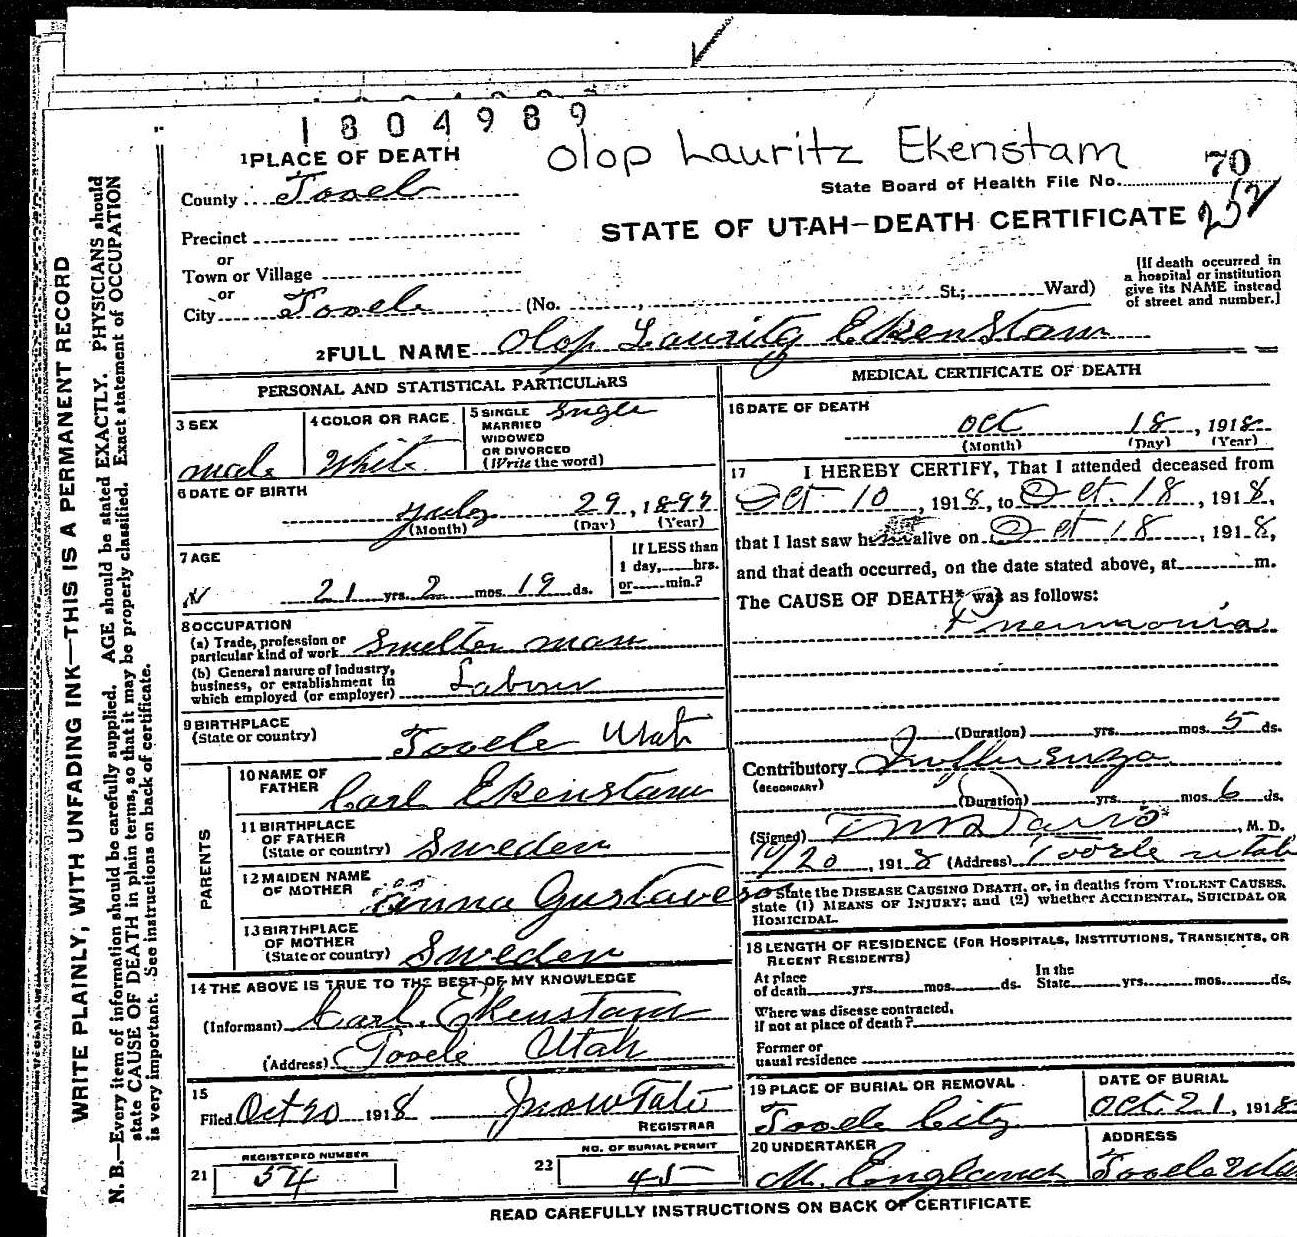 1804989
Olop Lauritz Ekenstam
1 PLACE OF DEATH
70
County Tooele
State Board of Health File No. 252
Precinct
STATE OF UTAH—DEATH CERTIFICATE
or
Town or Village
or
City Tooele (No. , St.; Ward)
[If death occurred in
a hospital or institution
give its NAME instead
of street and number.]
2 FULL NAME Olop Lauritz Ekenstam
PERSONAL AND STATISTICAL PARTICULARS
3 SEX
male
4 COLOR OR RACE
White
5 SINGLE
MARRIED
WIDOWED
OR DIVORCED
(Write the word)
Single
6 DATE OF BIRTH
July 29, 1897
(Month) (Day) (Year)
7 AGE
21 yrs. 2 mos. 19 ds.
If LESS than
1 day, hrs.
or min.?
8 OCCUPATION
(a) Trade, profession or
particular kind of work Smelter man
(b) General nature of industry,
business, or establishment in
which employed (or employer) Labour
9 BIRTHPLACE
(State or country) Tooele Utah
PARENTS
10 NAME OF
FATHER Carl Ekenstam
11 BIRTHPLACE
OF FATHER
(State or country) Sweden
12 MAIDEN NAME
OF MOTHER Anna Gustaveson
13 BIRTHPLACE
OF MOTHER
(State or country) Sweden
14 THE ABOVE IS TRUE TO THE BEST OF MY KNOWLEDGE
(Informant) Carl Ekenstam
(Address) Tooele Utah
15
Filed Oct 20 1918
REGISTRAR
REGISTERED NUMBER
21 54
NO. OF BURIAL PERMIT
22 45
MEDICAL CERTIFICATE OF DEATH
16 DATE OF DEATH
Oct 18, 1918
(Month) (Day) (Year)
17 I HEREBY CERTIFY, That I attended deceased from
Oct 10, 1918, to Oct. 18, 1918,
that I last saw h alive on Oct 18, 1918,
and that death occurred, on the date stated above, at m.
The CAUSE OF DEATH* was as follows:
Pneumonia
(Duration) yrs. mos. 5 ds.
Contributory Influenza
(SECONDARY)
(Duration) yrs. mos. 6 ds.
(Signed) , M. D.
10/20, 1918 (Address) Tooele Utah
*State the DISEASE CAUSING DEATH, or, in deaths from VIOLENT CAUSES,
state (1) MEANS OF INJURY; and (2) whether ACCIDENTAL, SUICIDAL OR
HOMICIDAL.
18 LENGTH OF RESIDENCE (FOR HOSPITALS, INSTITUTIONS, TRANSIENTS, OR
RECENT RESIDENTS)
At place
of death yrs. mos. ds.
In the
State yrs. mos. ds.
Where was disease contracted,
if not at place of death?
Former or
usual residence
19 PLACE OF BURIAL OR REMOVAL
Tooele City
DATE OF BURIAL
Oct. 21, 1918
20 UNDERTAKER
M. England
ADDRESS
Tooele Utah
READ CAREFULLY INSTRUCTIONS ON BACK OF CERTIFICATE
WRITE PLAINLY, WITH UNFADING INK—THIS IS A PERMANENT RECORD
N. B.—Every item of information should be carefully supplied. AGE should be stated EXACTLY. PHYSICIANS should
state CAUSE OF DEATH in plain terms, so that it may be properly classified. Exact statement of OCCUPATION
is very important. See instructions on back of certificate.